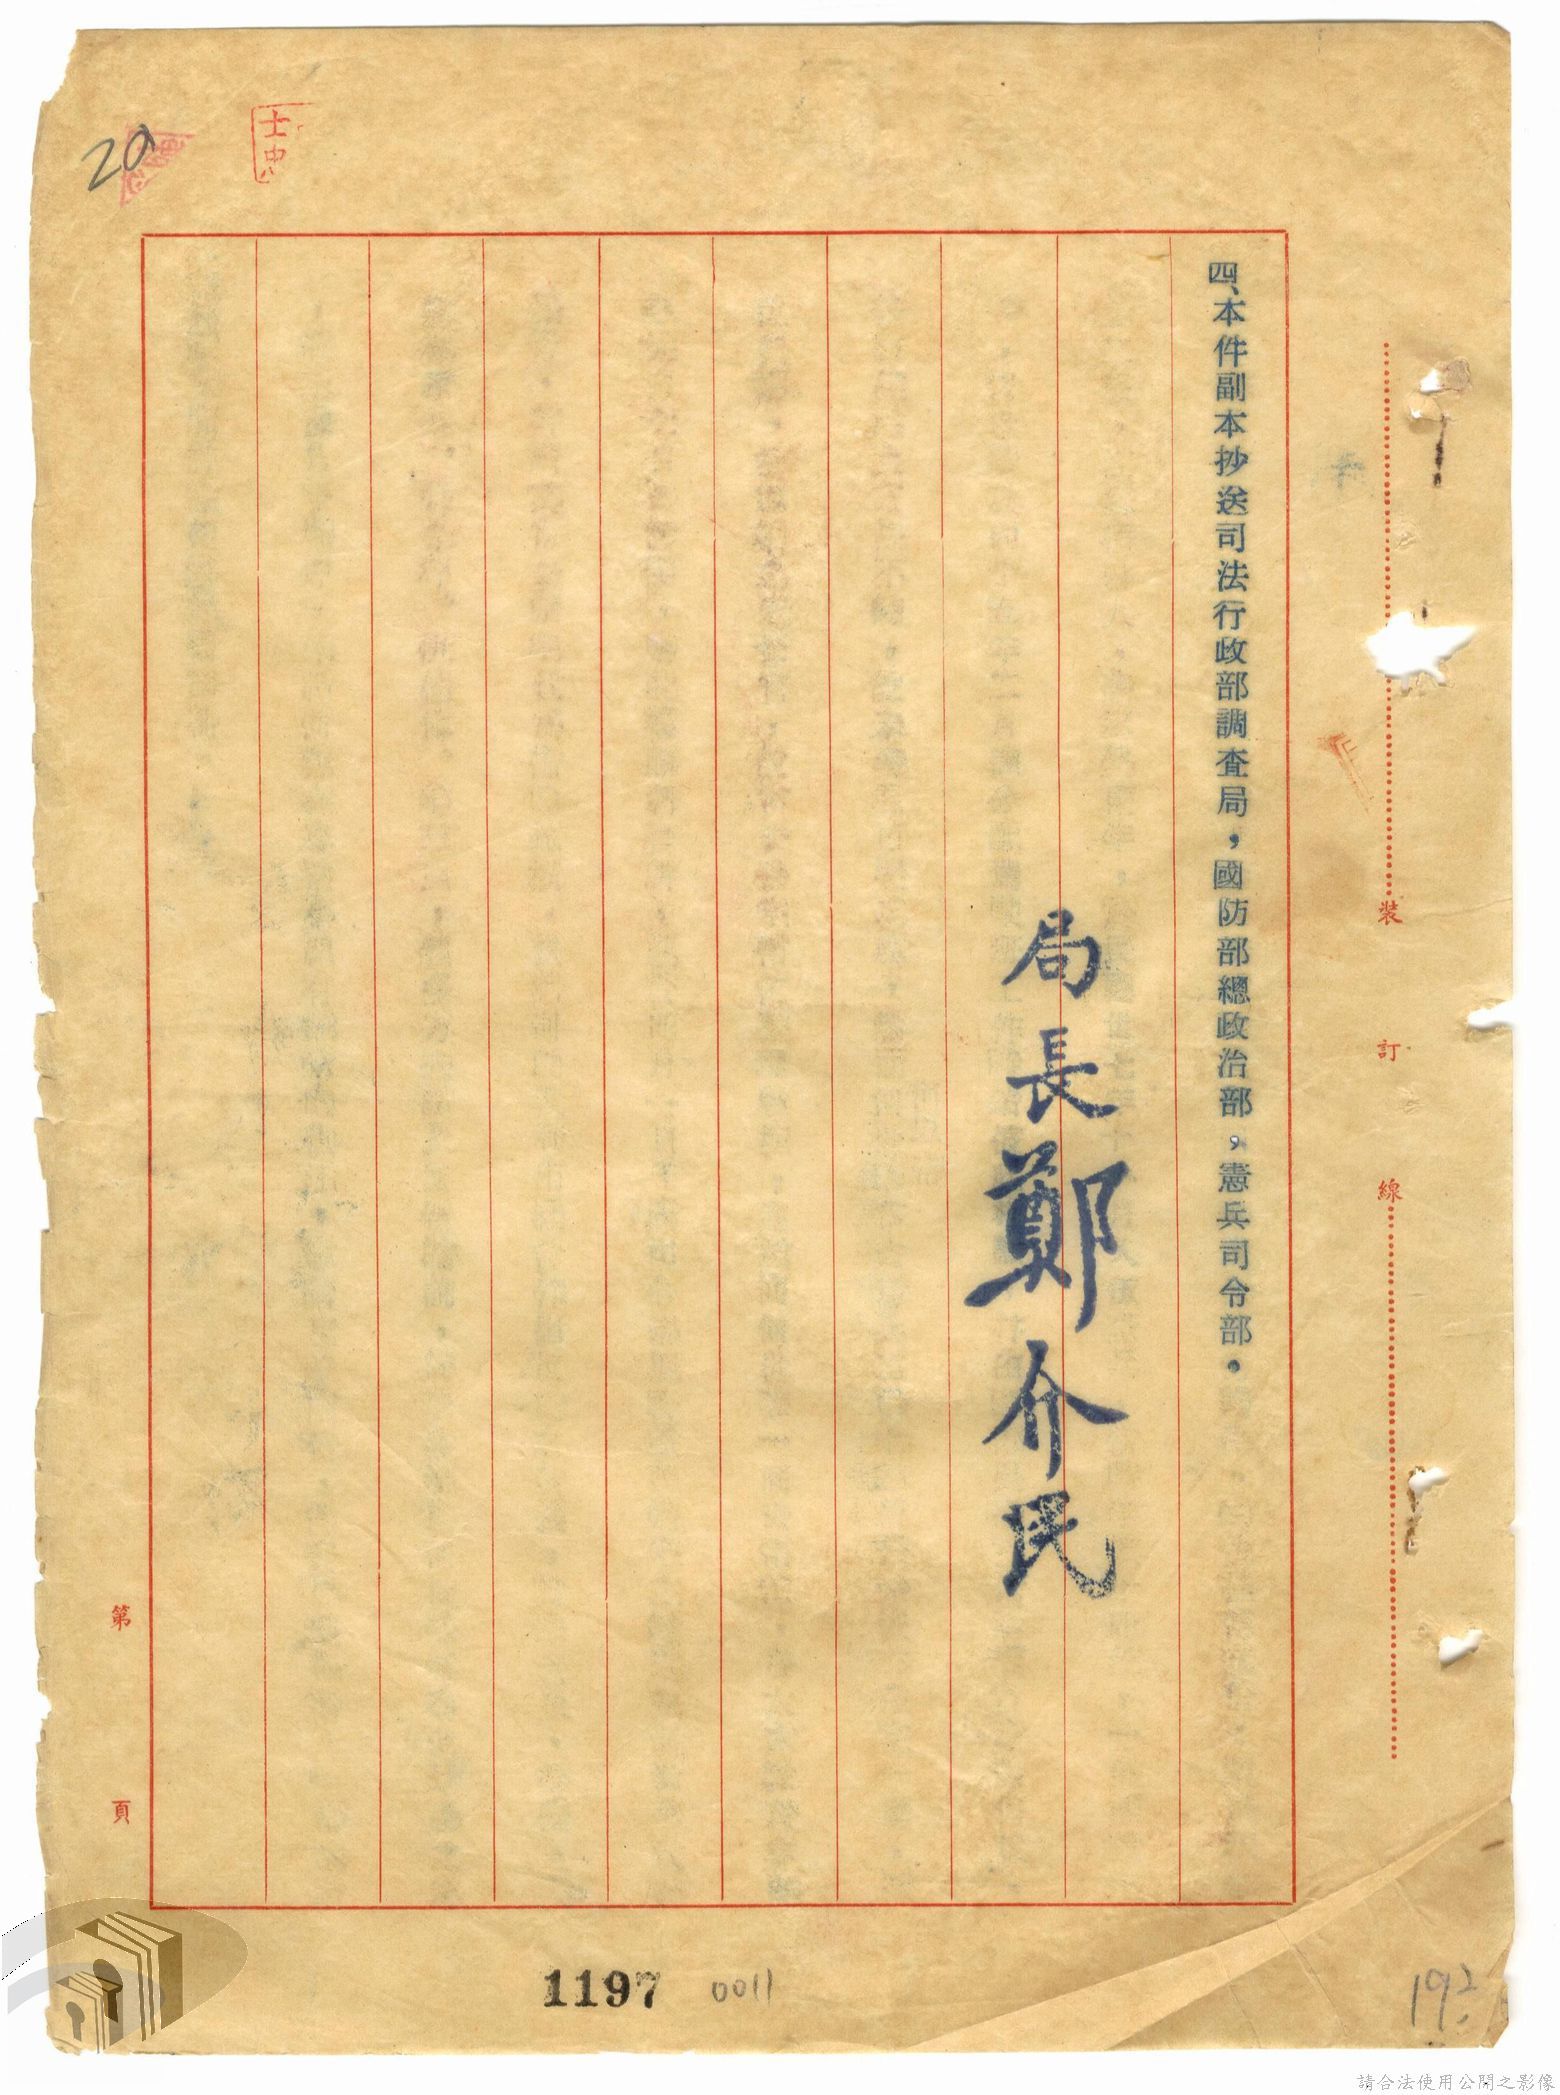 四、本件副本抄送司法行政部調查局，國防部總政治部，憲兵司令部。
局長鄭介民
裝 訂 線
第 頁
20
1197
0011
請合法使用公開之影像